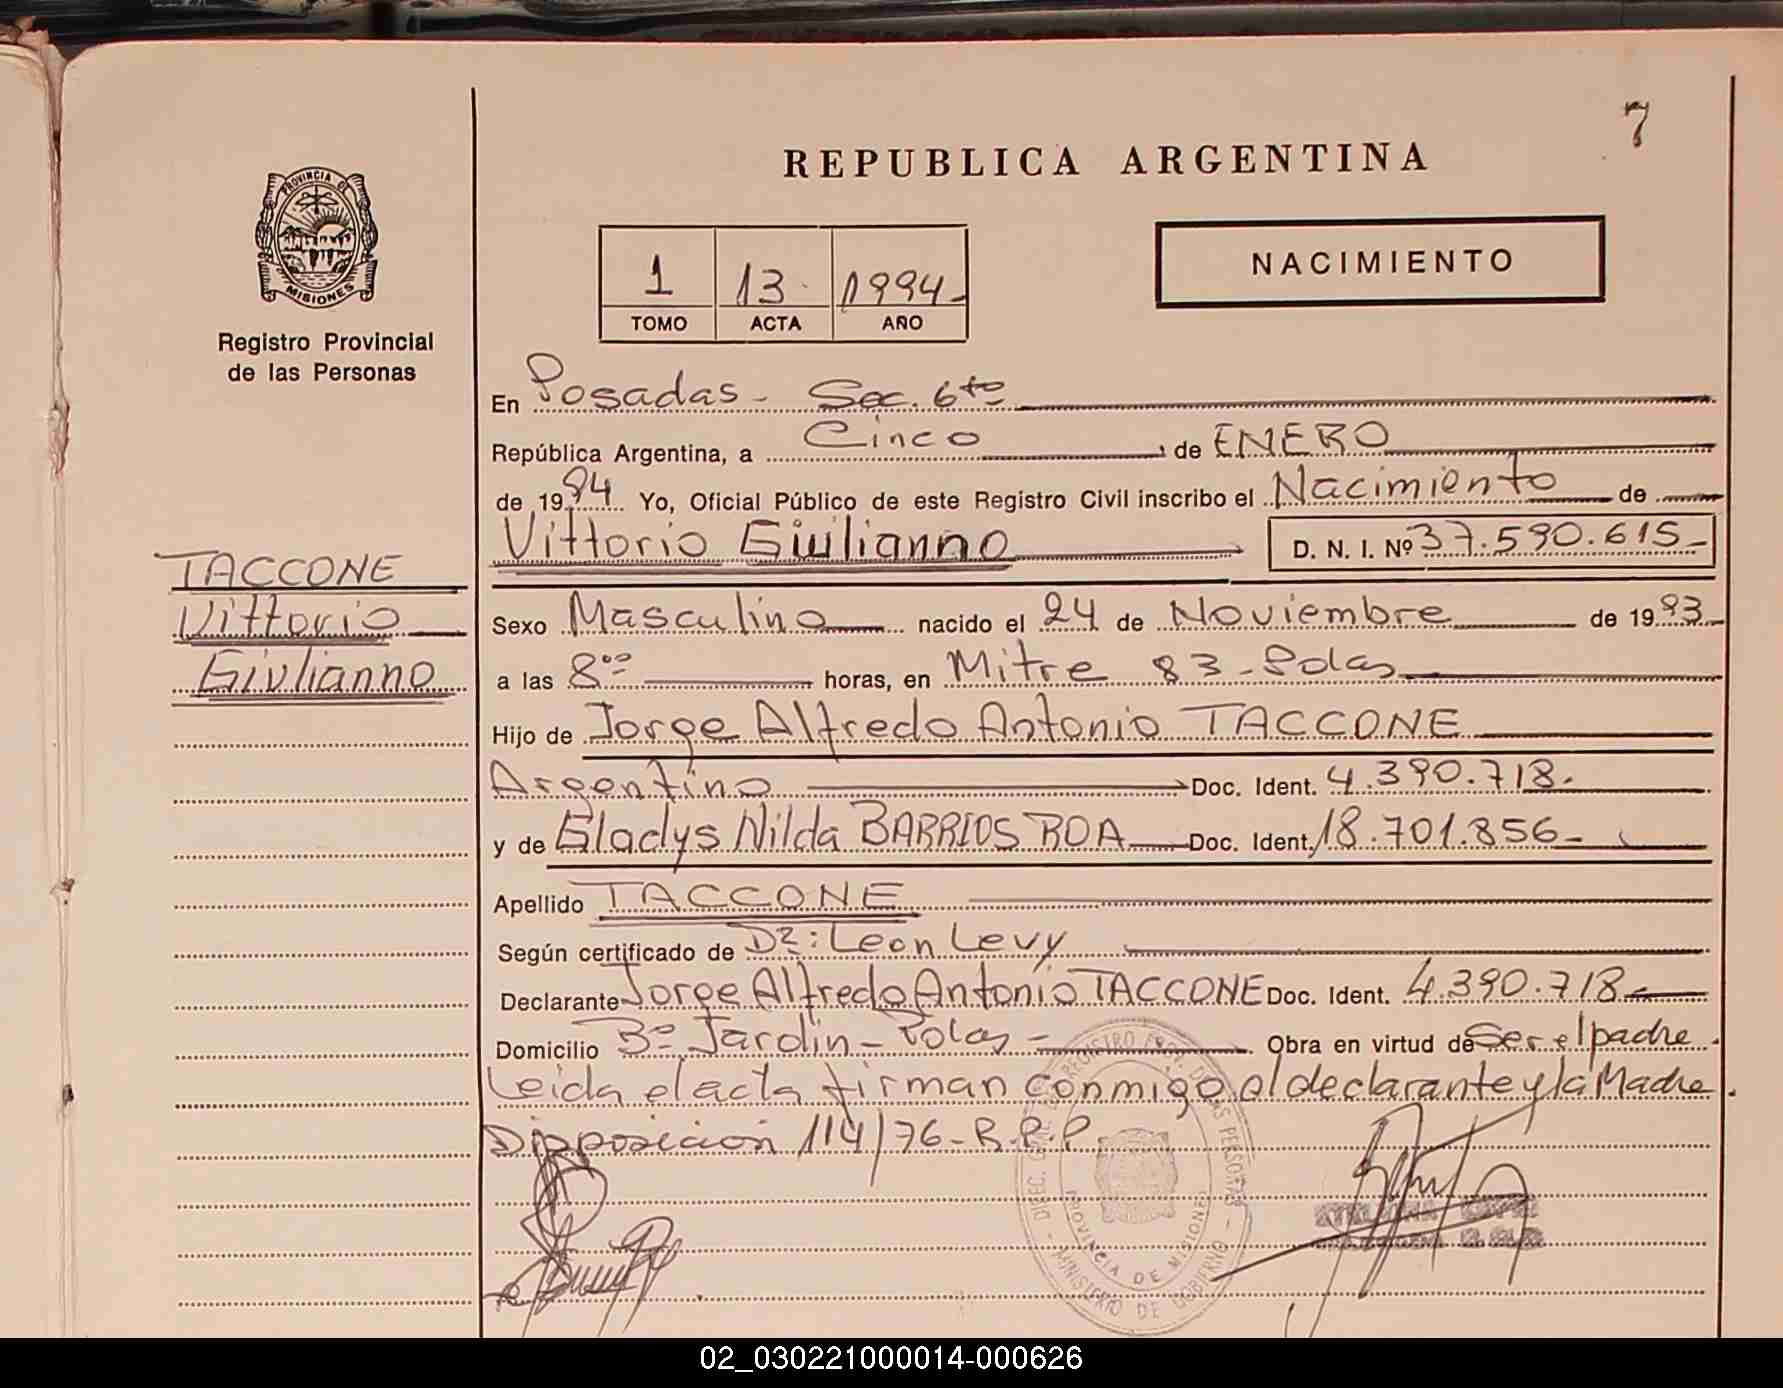 7
REPUBLICA ARGENTINA
PROVINCIA DE
MISIONES
Registro Provincial
de las Personas
1 13 1994
TOMO ACTA AÑO
NACIMIENTO
En Posadas - Sec. 6ta
República Argentina, a Cinco de ENERO
de 1994 Yo, Oficial Público de este Registro Civil inscribo el Nacimiento de
Vittorio Giulianno D. N. I. Nº 37.590.615
TACCONE
Vittorio
Giulianno
Sexo Masculino nacido el 24 de Noviembre de 1993
a las 8ºº horas, en Mitre 83 - Pdas
Hijo de Jorge Alfredo Antonio TACCONE
Argentino Doc. Ident. 4.390.718.
y de Gladys Nilda BARRIOS ROA Doc. Ident. 18.701.856
Apellido TACCONE
Según certificado de Dr: Leon Levy
Declarante Jorge Alfredo Antonio TACCONE Doc. Ident. 4.390.718
Domicilio Bº Jardin - Pdas - Obra en virtud de Ser el padre
Leida el acta firman conmigo el declarante y la Madre.
Disposición 114/76 - R.P.P.
MINISTERIO DE GOBIERNO
PROVINCIA DE MISIONES
02_030221000014-000626